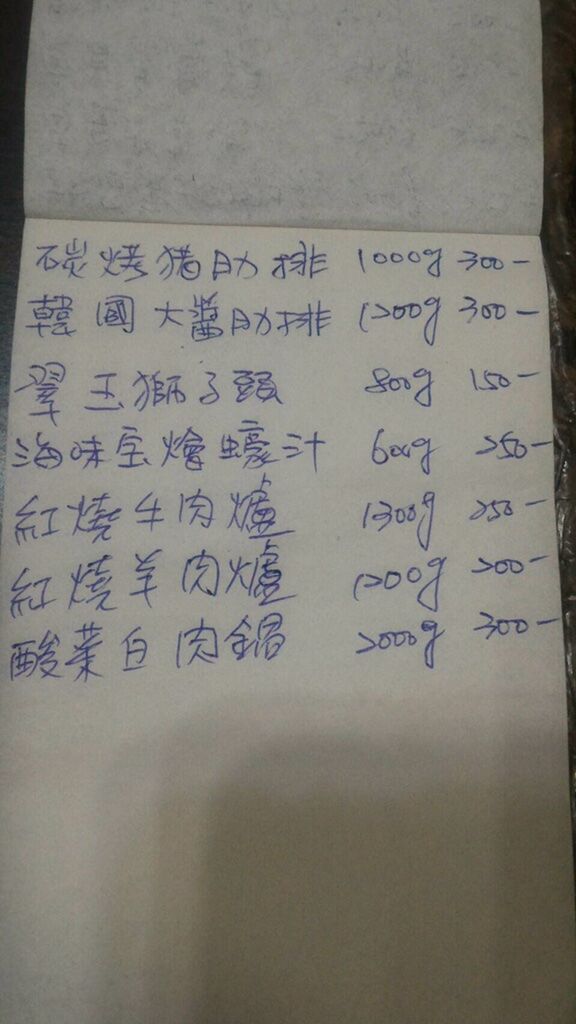 碳烤猪肋排 1000g 300-
韓國大醬肋排 1200g 300-
翠玉獅子頭 800g 150-
海味宝燴蠔汁 600g 250-
紅燒牛肉爐 1300g 250-
紅燒羊肉爐 1200g 200-
酸菜白肉鍋 2000g 300-